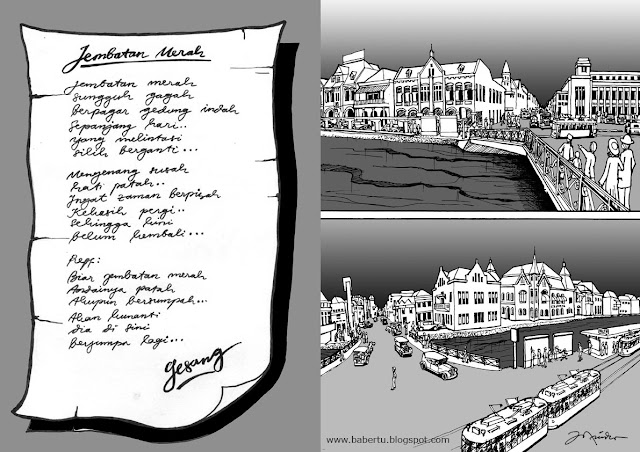 Jembatan Merah
Jembatan merah
Sungguh gagah
Berpagar gedung indah
Sepanjang hari..
yang melintasi
Silih berganti...
Mengenang susah
hati patah..
Ingat zaman berpisah
Kekasih pergi..
Sehingga kini
Belum kembali...
Reff:
Biar jembatan merah
Andainya patah
Akupun bersumpah...
Akan kunanti
dia di sini
Berjumpa lagi...
gesang
www.babertu.blogspot.com